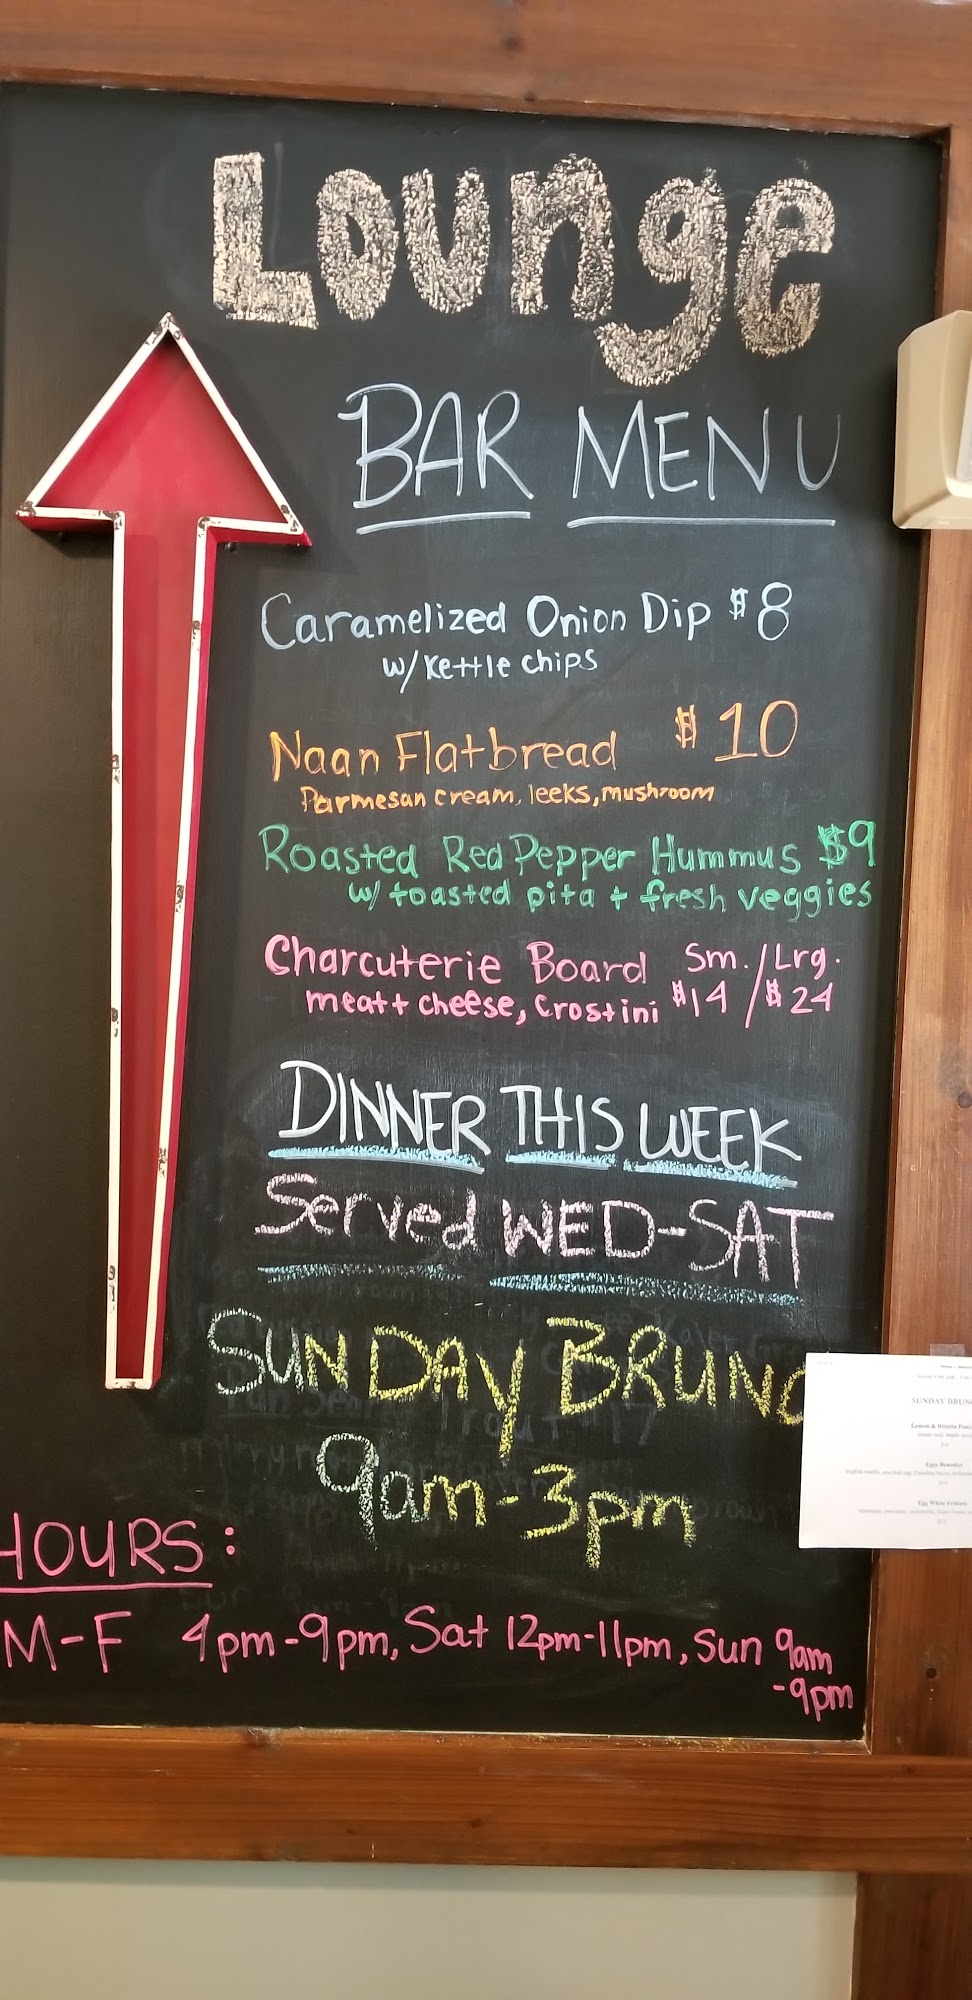 Lounge
BAR MENU
Caramelized Onion Dip $8
w/ Kettle chips
Naan Flatbread $10
Parmesan cream, leeks, mushroom
Roasted Red Pepper Hummus $9
w/ toasted pita + fresh veggies
Charcuterie Board Sm./Lrg.
meat + cheese, Crostini $14/$24
DINNER THIS WEEK
Served WED-SAT
SUNDAY BRUNC
9am-3pm
SUNDAY BRUNC
Eggs Benedict
HOURS:
M-F 4pm-9pm, Sat 12pm-11pm, Sun 9am
-9pm